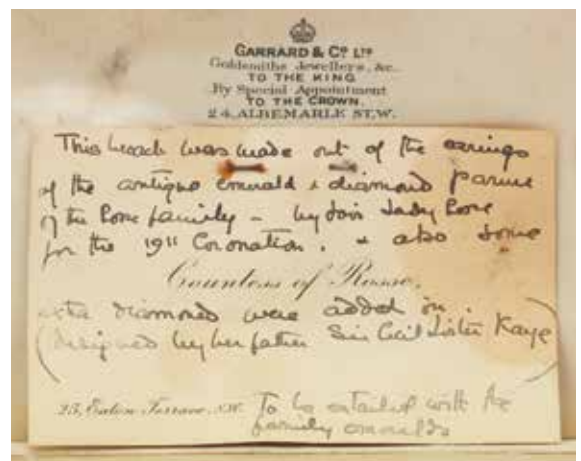 GARRARD & Co. LTD
Goldsmiths Jewellers, &c.
TO THE KING
By Special Appointment
TO THE CROWN.
24, ALBEMARLE ST, W.
This broach was made out of the earrings
of the antique emerald & diamond parure
of the Rosse family – by dow Lady Rosse
for the 1911 Coronation. & also some
Countess of Rosse.
extra diamonds were added on.
(designed by her father Sir Cecil Lister Kaye)
25, Eaton Terrace. S.W. To be entailed with the
family emeralds